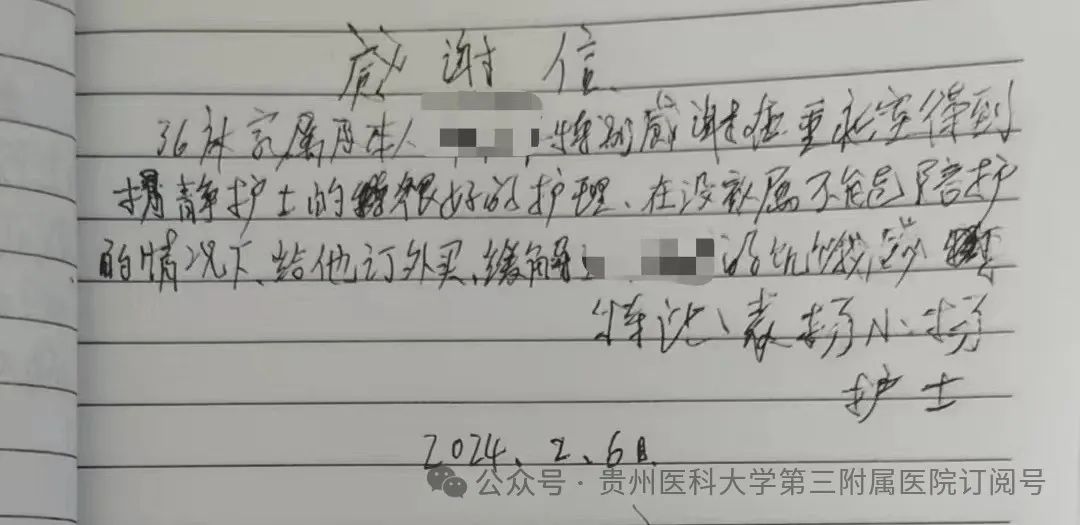 感谢信
36床家属及本人 特别感谢在重症室得到
杨静护士的很好的护理、在没家属不能陪护
的情况下、给他订外买、缓解 没饥饿
特此、表扬小杨
护士
2024、2、6日
公众号·贵州医科大学第三附属医院订阅号